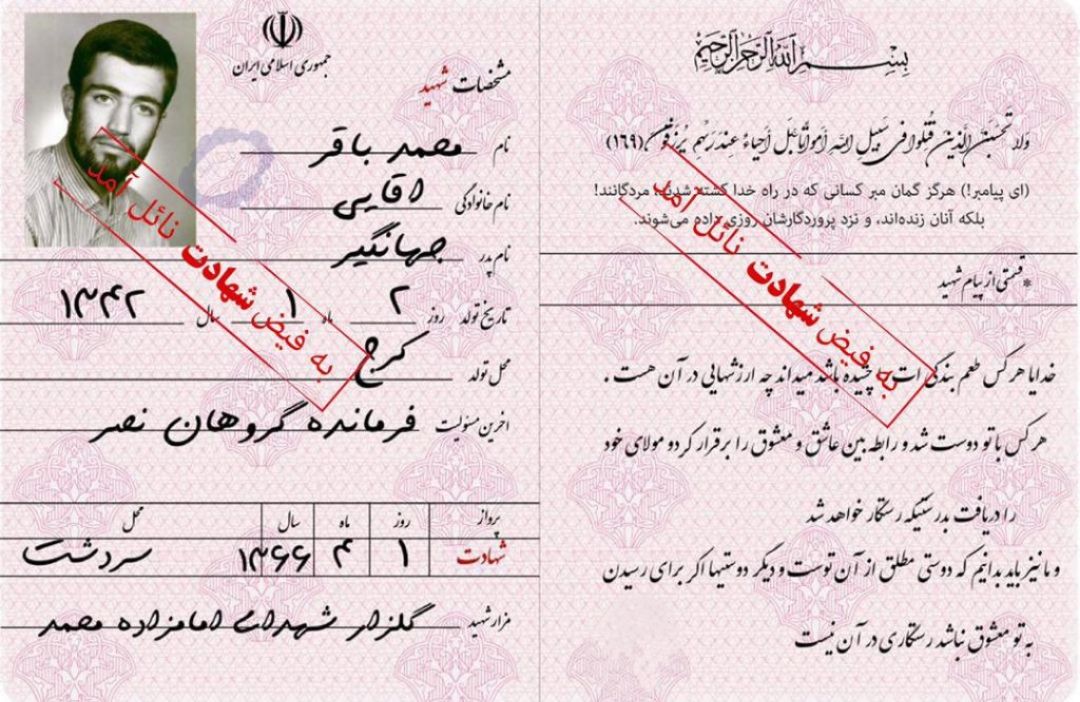 بسم الله الرحمن الرحیم
ولا تحسبن الذین قتلوا فی سبیل الله امواتا بل احیاء عند ربهم یرزقون (۱۶۹)
(ای پیامبر!) هرگز گمان مبر کسانی که در راه خدا کشته شدند، مردگانند!
بلکه آنان زنده‌اند، و نزد پروردگارشان روزی داده می‌شوند.
*قسمتی از پیام شهید
خدایا هر کس طعم بندگی ات را چشیده باشد میداند چه ارزشهایی در آن هست .
هر کس با تو دوست شد و رابطه بین عاشق و معشوق را برقرار کرد و مولای خود
را دریافت بدرستیکه رستگار خواهد شد
و ما نیز باید بدانیم که دوستی مطلق از آن توست و دیگر دوستیها اگر برای رسیدن
به تو معشوق نباشد رستگاری در آن نیست
به فیض شهادت نائل آمد
جمهوری اسلامی ایران
مشخصات شهید
نام محمد باقر
نام خانوادگی اقایی
نام پدر جهانگیر
تاریخ تولد روز ۲ ماه ۱ سال ۱۳۴۲
محل تولد کرج
اخرین مسئولیت فرمانده گروهان نصر
پرواز روز ماه سال محل
شهادت ۱ ۴ ۱۳۶۶ سردشت
مزار شهید گلزار شهدای امامزاده محمد
به فیض شهادت نائل آمد